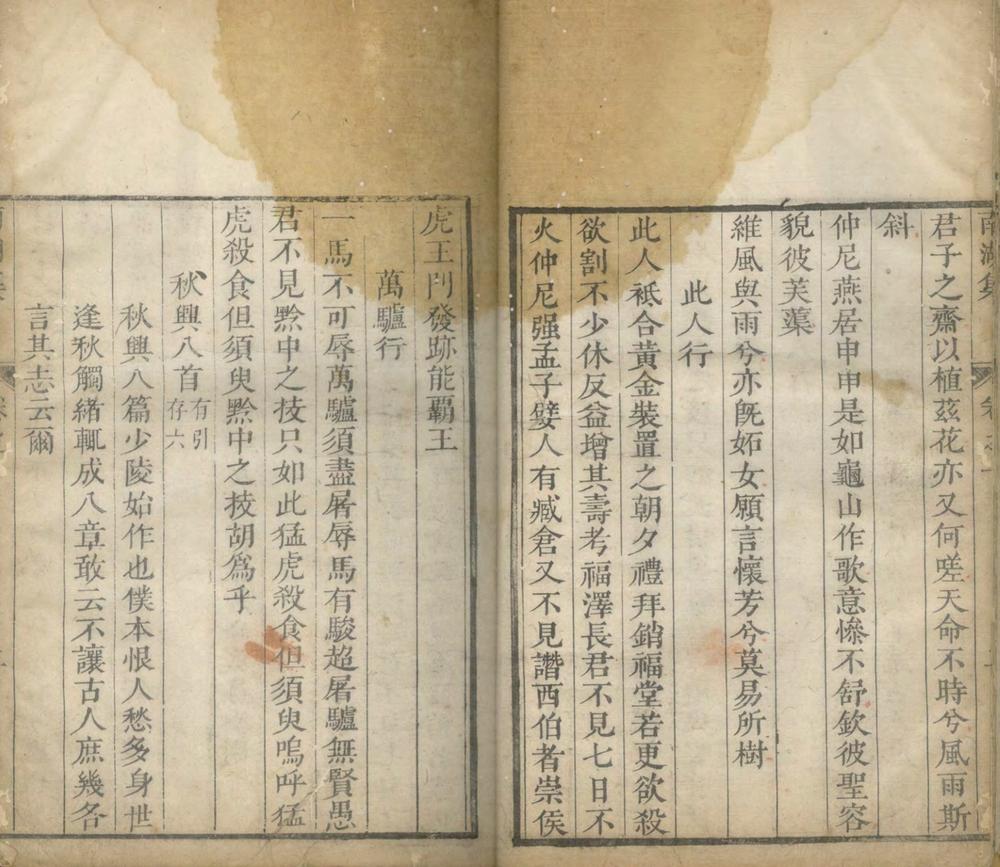 南湖集 卷之一
君子之齋以植茲花亦又何嗟天命不時兮風雨斯
斜
仲尼燕居申申是如龜山作歌意慘不舒欽彼聖容
貌彼芙蕖
維風與雨兮亦旣妬女願言懷芳兮莫易所樹
此人行
此人祗合黃金裝置之朝夕禮拜銷福堂若更欲殺
欲割不少休反益增其壽考福澤長君不見七日不
火仲尼强孟子嬖人有臧倉又不見譖西伯者崇侯
虎王門發跡能覇王
萬驢行
一馬不可辱萬驢須盡屠辱馬有駿超屠驢無賢愚
君不見黔中之技只如此猛虎殺食但須臾嗚呼猛
虎殺食但須臾黔中之技胡爲乎
秋興八首 有引存六
秋興八篇少陵始作也僕本恨人愁多身世
逢秋觸緒輒成八章敢云不讓古人庶幾各
言其志云爾